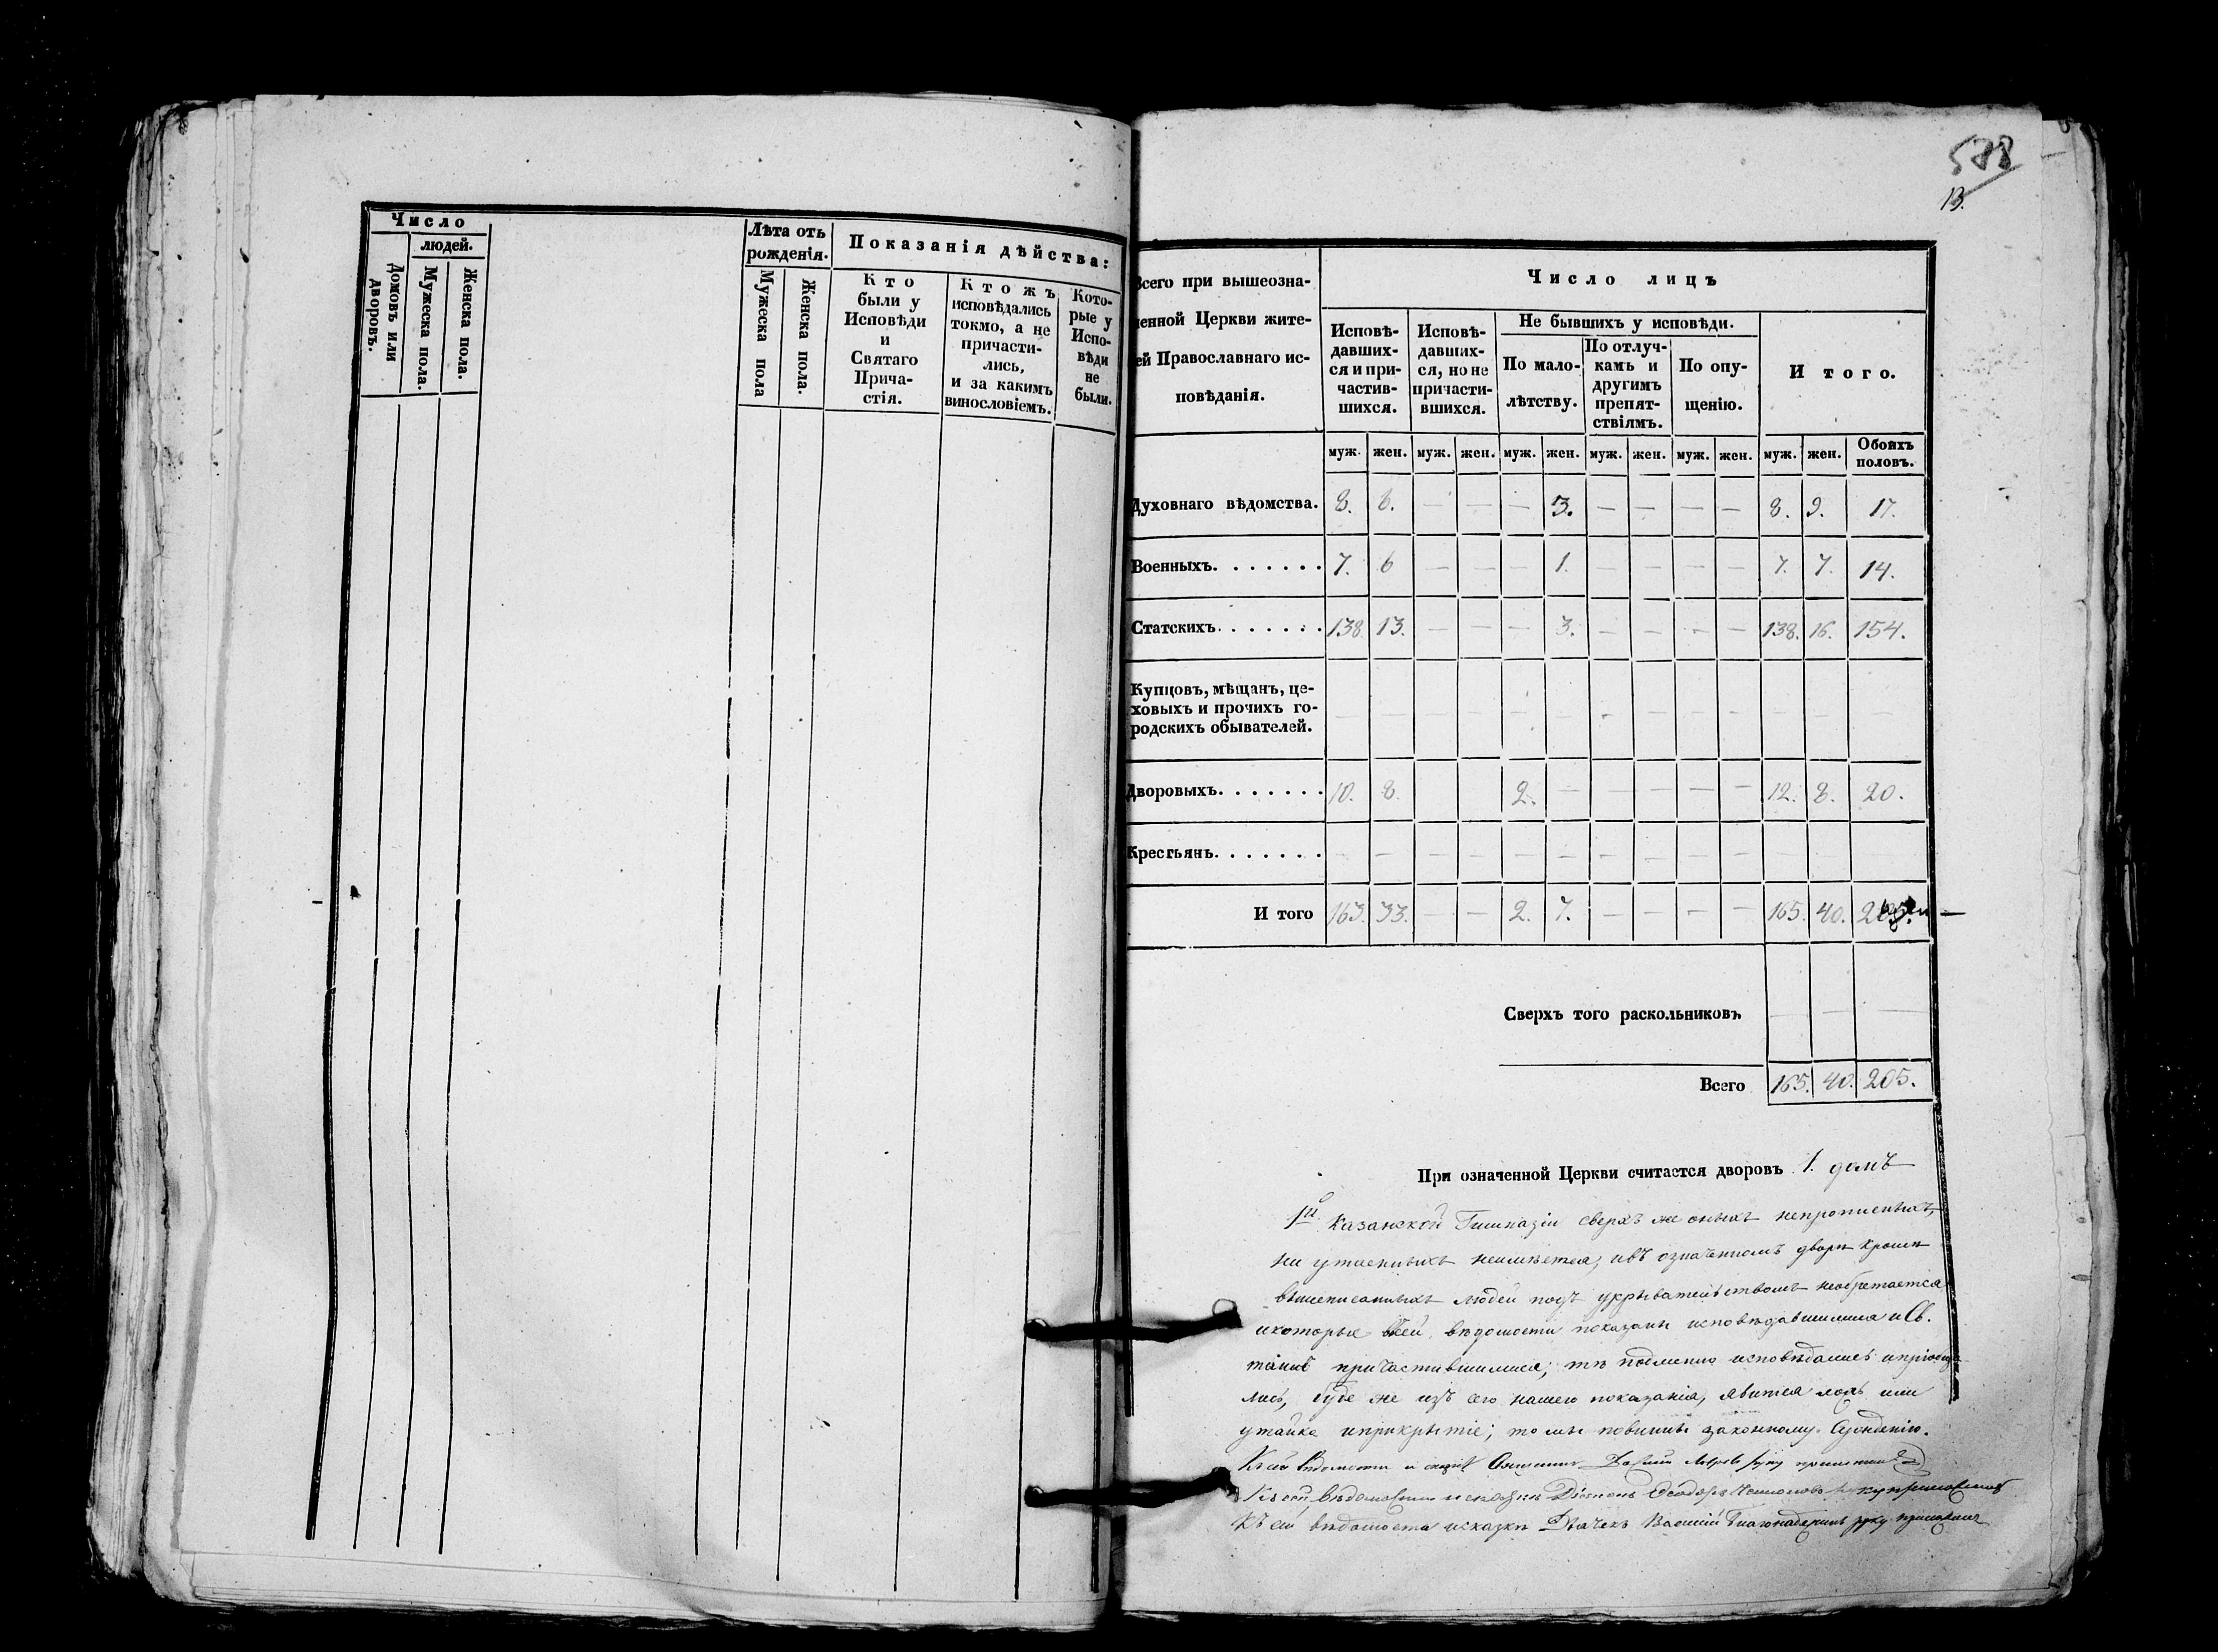 Число
людей.
Домовъ или дворовъ.
Мужеска пола.
Женска пола.
Лѣта отъ
рожденія.
Мужеска пола
Женска пола.
Показанія дѣйства:
Кто
были у
Исповѣди
и
Святаго
Прича-
стія.
Кто жъ
исповѣдались
токмо, а не
причасти-
лись,
и за какимъ
винословіемъ.
Кото-
рые у
Испо-
вѣди
не
были.
588
13.
Всего при вышеозна-
ченной Церкви жите-
лей Православнаго ис-
повѣданія.
Число лицъ
Исповѣ-
давших-
ся и при-
частив-
шихся.
Исповѣ-
давших-
ся, но не
причасти-
вшихся.
Не бывшихъ у исповѣди.
По мало-
лѣтству.
По отлуч-
камъ и
другимъ
препят-
ствіямъ.
По опу-
щенію.
Итого.
муж. жен. муж. жен. муж. жен. муж. жен. муж. жен. муж. жен. Обоихъ половъ.
Духовнаго вѣдомства. 8. 6. — — — 3. — — — — 8. 9. 17.
Военныхъ. . . . . . . 7. 6 — — — 1. — — — — 7. 7. 14.
Статскихъ. . . . . . . 138. 13. — — — 3. — — — — 138. 16. 154.
Купцовъ, мѣщанъ, це-
ховыхъ и прочихъ го-
родскихъ обывателей. — — — — — — — — — — — — —
Дворовыхъ. . . . . . . 10. 8. 2. — — — — — 12. 8. 20.
Крестьянъ. . . . . . . — — — — — — — — — —
И того 163. 33. — — 2. 7. — — — — 165. 40. 205.
Сверхъ того раскольниковъ — — —
Всего 165. 40. 205.
При означенной Церкви считается дворовъ 1. домъ
1й Казанской Гимназіи сверхъ же оныхъ непрописныхъ,
ни утаенныхъ неимѣется, ивъ означенномъ дворѣ кромѣ
вышеписанныхъ людей подъ укрывательствомъ необретается
икоторые всей вѣдомости показаны исповѣдавшимися иСв.
таинъ причастившимися; тѣ подлинно исповѣдались
лись, буде же изъ сего нашего показанія, явится ложь или
утайка иприкрытіе; то мы повинны законному Сужденію.
Къ сей вѣдомости и
Къ сей вѣдомости и сказкѣ Діаконъ Ѳеодоръ руку приложилъ
Къ сей вѣдомости исказкѣ Дьячекъ Василій руку приложилъ